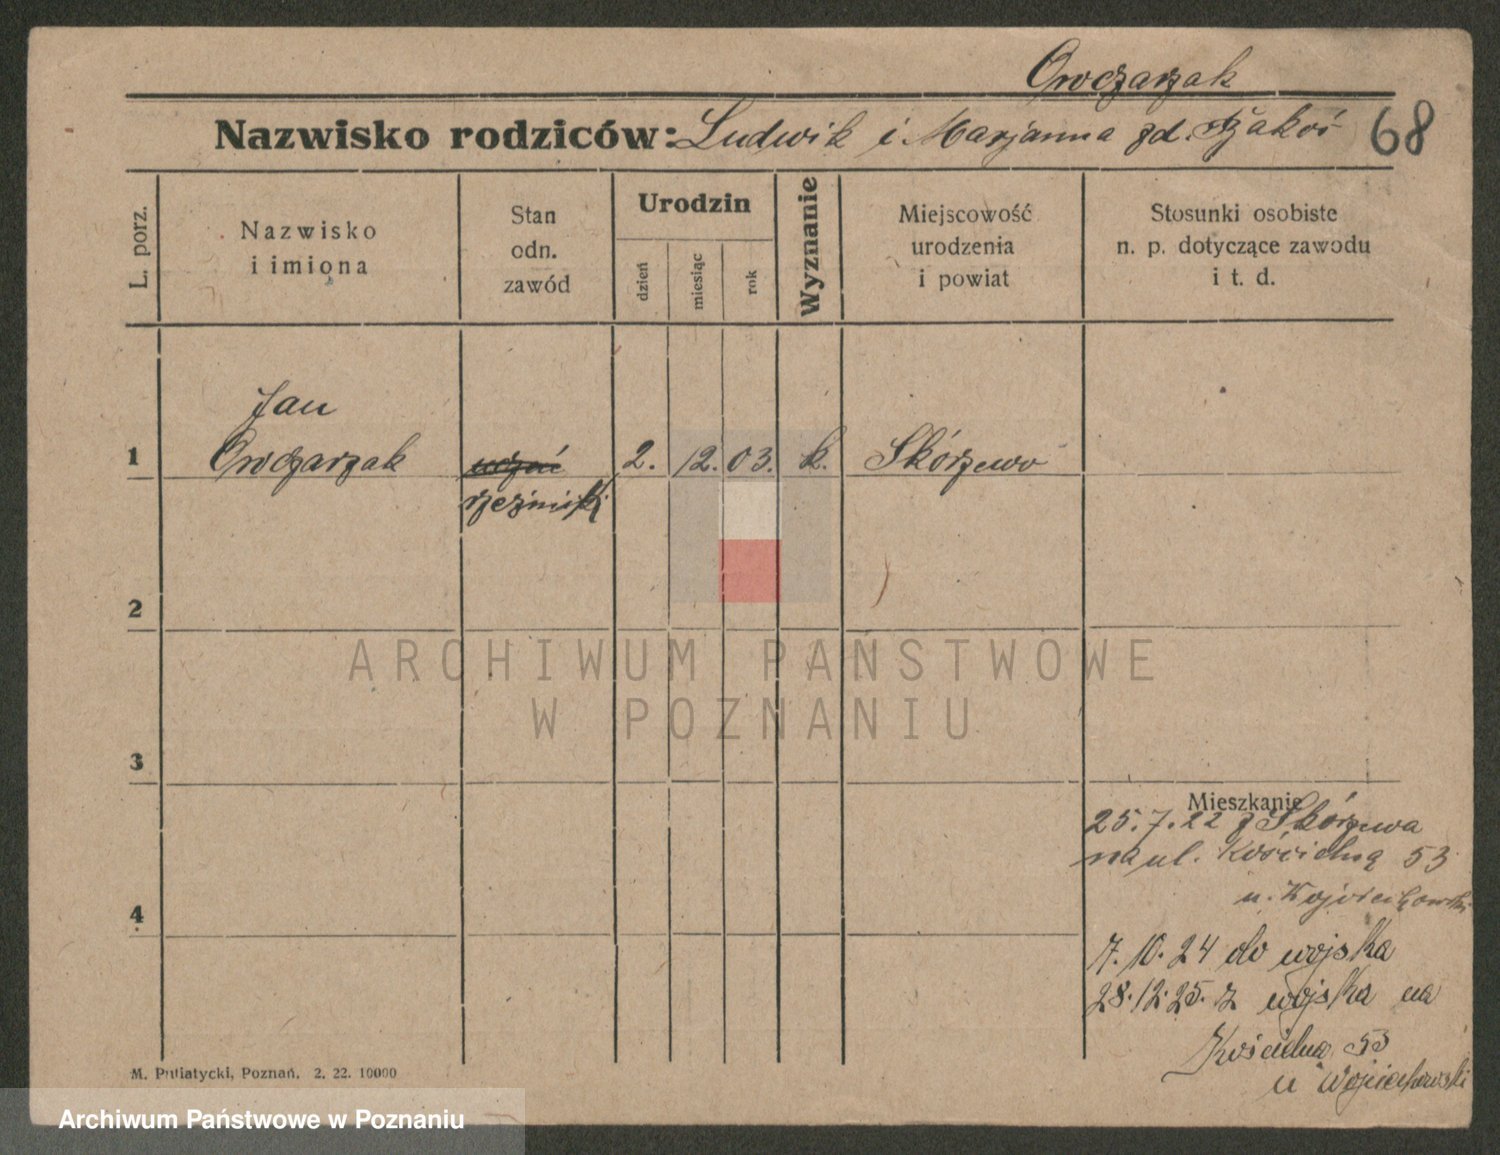 Owczarzak
Nazwisko rodziców: Ludwik i Marjanna zd.
68
L. porz.
Nazwisko
i imiona
Stan
odn.
zawód
Urodzin
dzień
miesiąc
rok
Wyznanie
Miejscowość
urodzenia
i powiat
Stosunki osobiste
n. p. dotyczące zawodu
i t. d.
Jan
1 Owczarzak uczeń 2. 12. 03. k. Skórzewo
rzeźnicki
2
3
4
ARCHIWUM PAŃSTWOWE
W POZNANIU
Mieszkanie
25.7.22 z Skórzewa
na ul. Kościelną 53
u. Wojciechowski
7.10.24 do wojska
28.12.25. z wojska na
Kościelna 53
u Wojciechowski
M. Putiatycki, Poznań, 2. 22. 10000
Archiwum Państwowe w Poznaniu